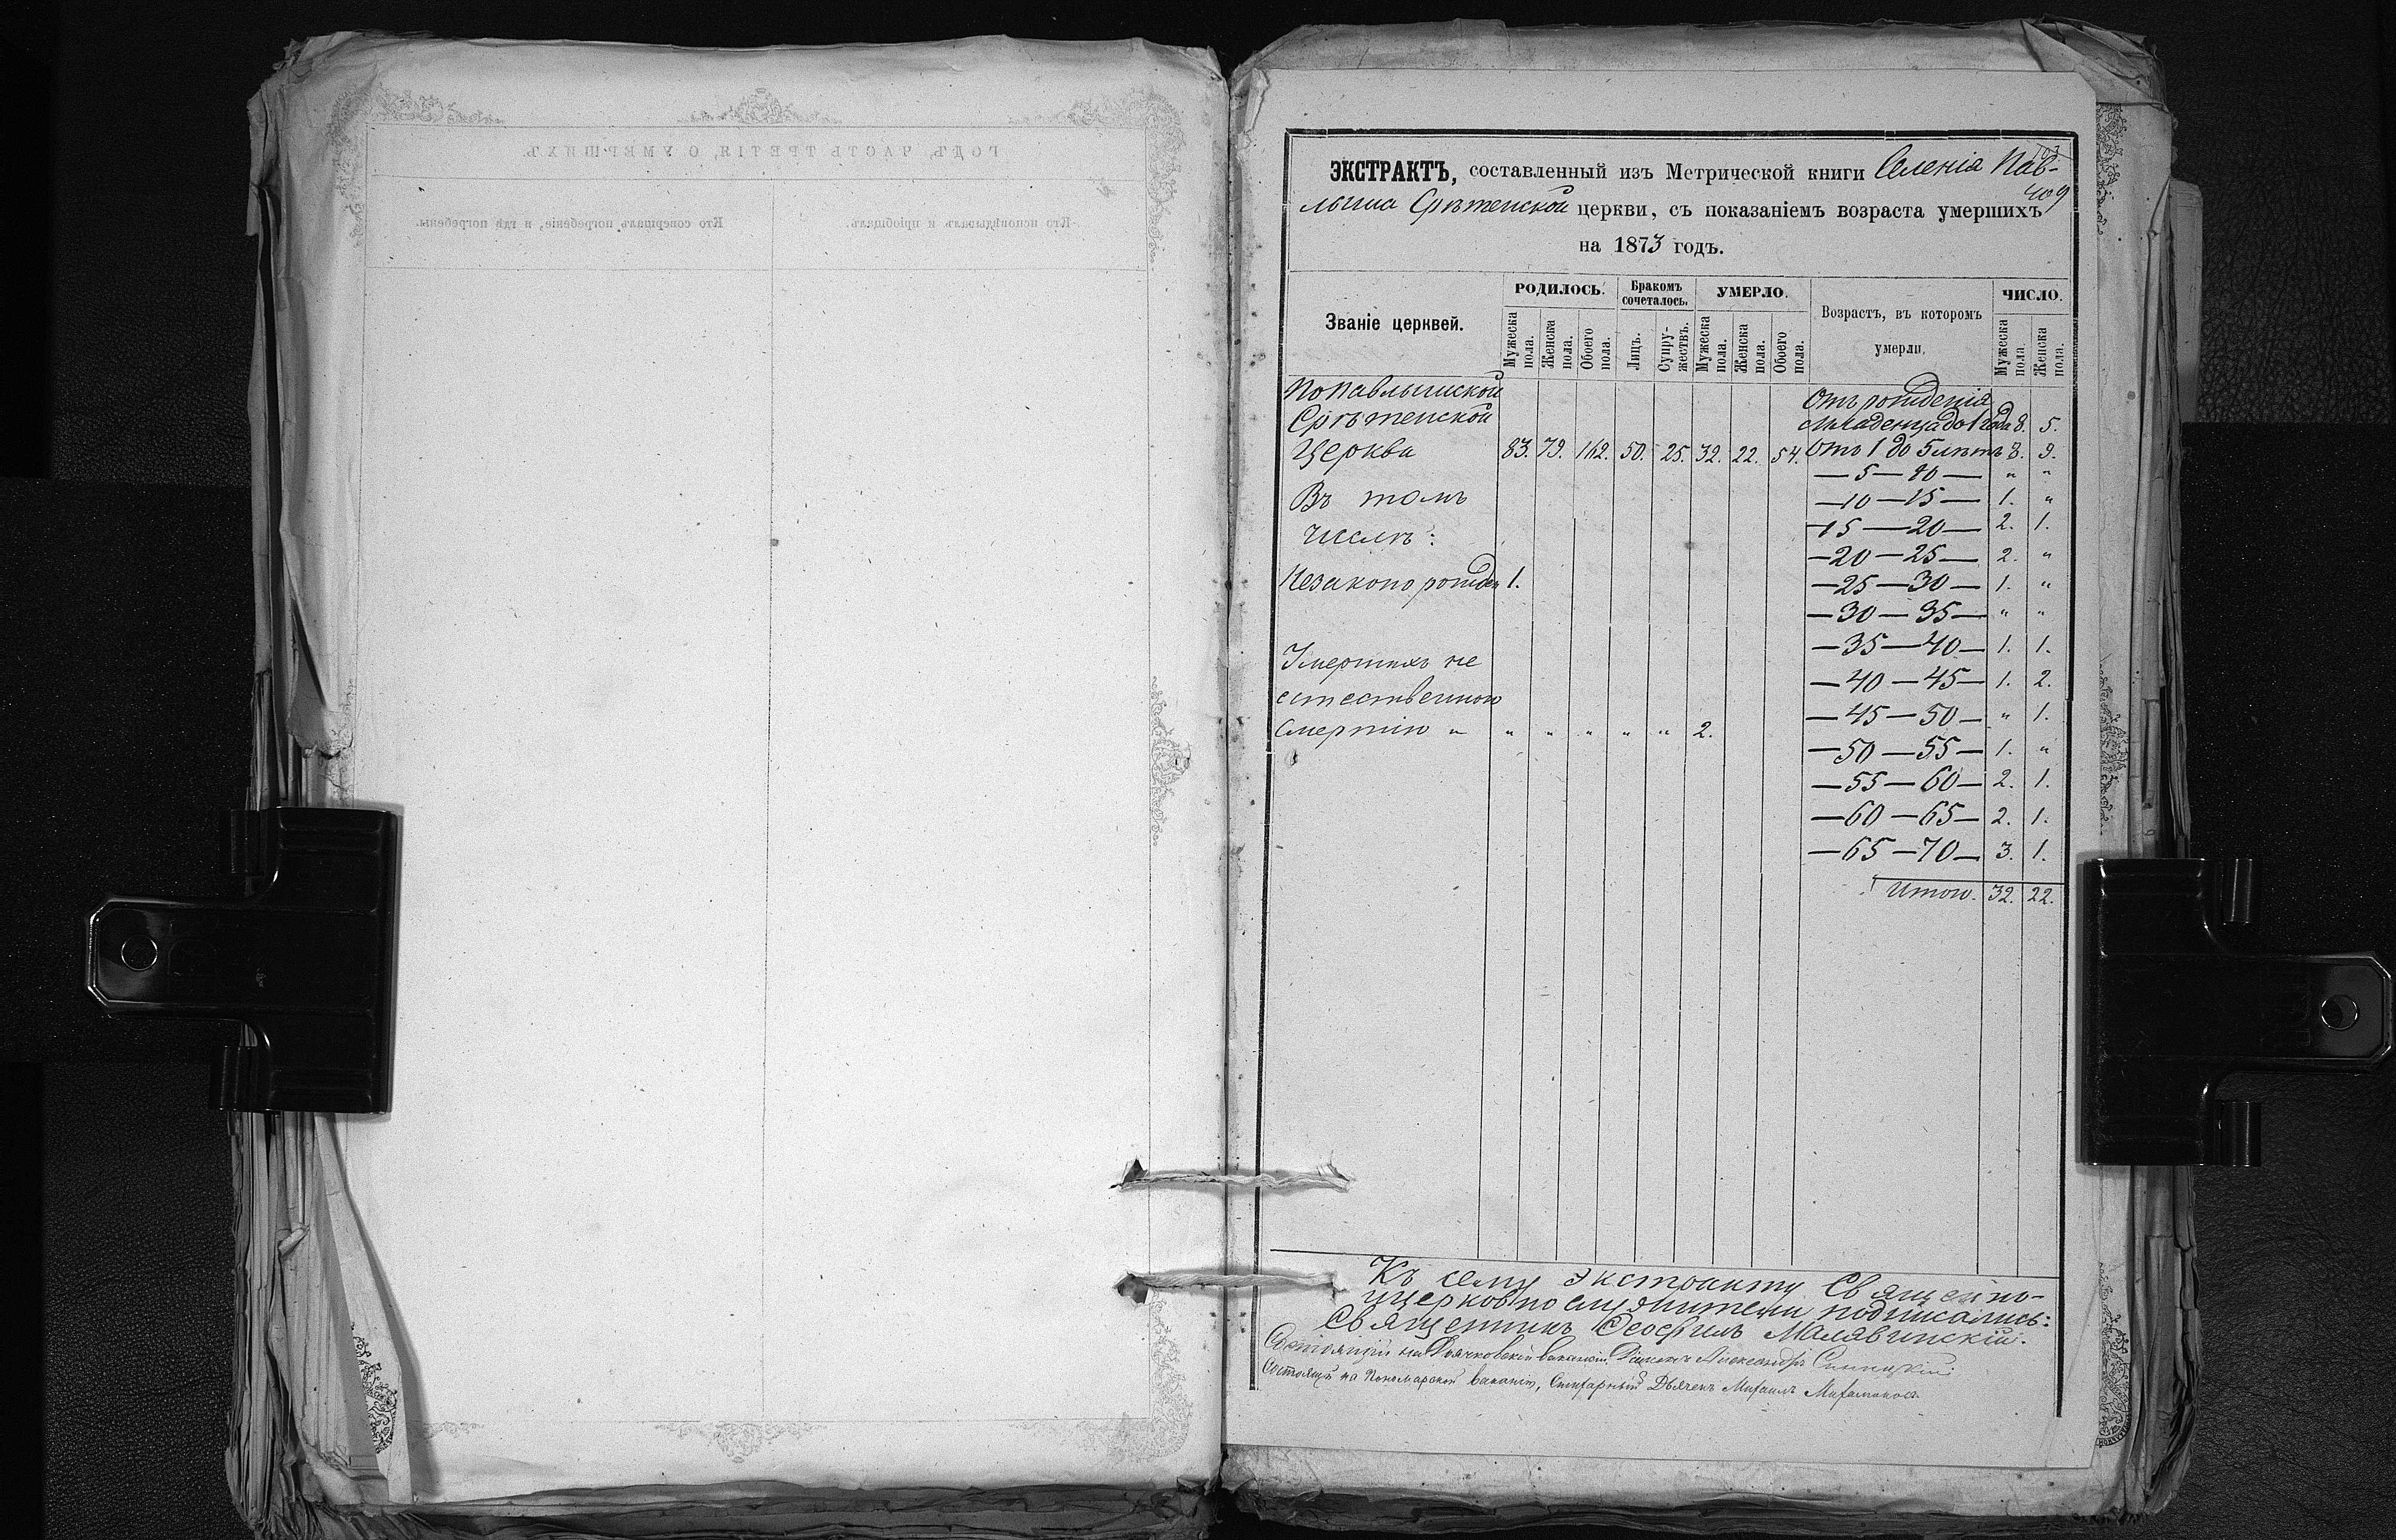 ГОДЪ, ЧАСТЬ ТРЕТІЯ, О УМЕРШИХЪ.
Кто исповѣдывалъ и пріобщалъ.
Кто совершалъ погребеніе, и гдѣ погребены.
103
409
ЭКСТРАКТЪ, составленный изъ Метрической книги Селенія Пав-
лыша Срѣтенской церкви, съ показаніемъ возраста умершихъ
на 1873 годъ.
Званіе церквей.
РОДИЛОСЬ.
Бракомъ сочеталось.
УМЕРЛО.
Возрастъ, въ которомъ умерли.
ЧИСЛО.
Мужеска пола.
Женска пола.
Обоего пола.
Лицъ.
Супру-жествъ.
Мужеска пола.
Женска пола.
Обоего пола.
Мужеска пола.
Женска пола.
По Павлышской
Срѣтенской
Церкви 83. 79. 162. 50. 25. 32. 22. 54.
Въ томъ
числѣ:
Незаконорожден 1.
Умершихъ не
естественною
смертію " " " " " " 2.
Отъ рожденія
младенца до 1 года 8. 5.
Отъ 1 до 5 лѣтъ 8. 9.
— 5 — 10 — " "
— 10 — 15 — 1. "
— 15 — 20 — 2. 1.
— 20 — 25 — 2. "
— 25 — 30 — 1. "
— 30 — 35 — " "
— 35 — 40 — 1. 1.
— 40 — 45 — 1. 2.
— 45 — 50 — " 1.
— 50 — 55 — 1. "
— 55 — 60 — 2. 1.
— 60 — 65 — 2. 1.
— 65 — 70 — 3. 1.
Итого. 32. 22.
Къ сему экстракту Священно-
церковнослужители подписались:
Священникъ Ѳеофилъ Малявинскій.
Состоящій на Дьячковской вакансіи, Діаконъ Александръ Синицкій
Состоящій на Пономарской вакансіи, Дьячекъ Михаилъ